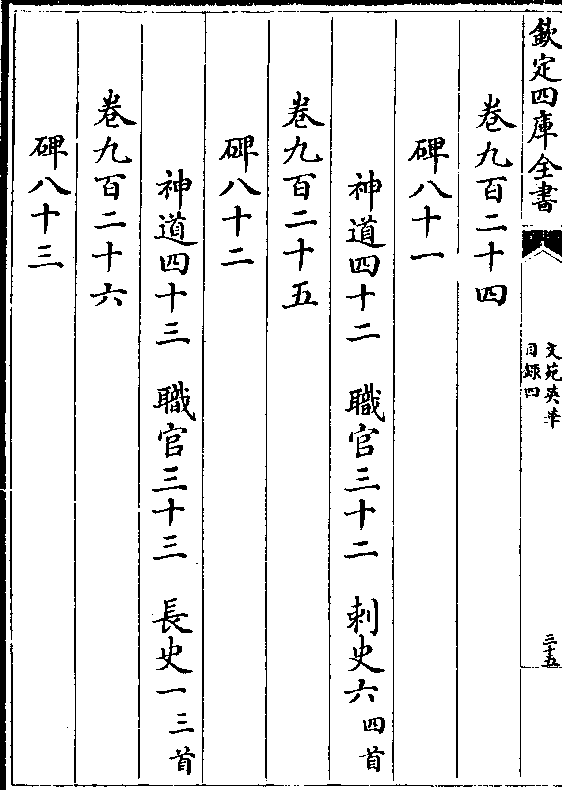 欽定四庫全書
文苑英華
目録四
三十五
卷九百二十四
碑八十一
神道四十二 職官三十二 刺史六四首
卷九百二十五
碑八十二
神道四十三 職官三十三 長史一三首
卷九百二十六
碑八十三